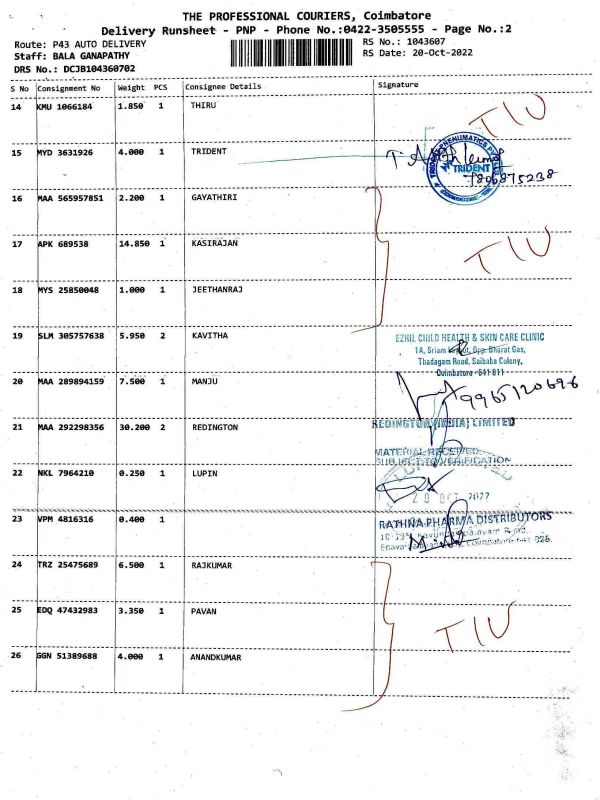 THE PROFESSIONAL COURIERS, Coimbatore
Delivery Runsheet - PNP - Phone No.:0422-3505555 - Page No.:2
Route: P43 AUTO DELIVERY
RS No.: 1043607
Staff: BALA GANAPATHY
RS Date: 20-Oct-2022
DRS No.: DCJB104360702
S No Consignment No Weight PCS Consignee Details Signature
14 KMU 1066184 1.850 1 THIRU
TIU
15 MYD 3631926 4.000 1 TRIDENT
TRIDENT
7806875238
16 MAA 565957851 2.200 1 GAYATHIRI
17 APK 689538 14.850 1 KASIRAJAN
TIU
18 MYS 25850048 1.000 1 JEETHANRAJ
19 SLM 305757638 5.950 2 KAVITHA
EZHIL CHILD HEALTH & SKIN CARE CLINIC
1A, Sriam Layout, Opp. Bharat Gas,
Thadagam Road, Saibaba Colony,
Coimbatore - 641 011
20 MAA 289894159 7.500 1 MANJU
9965120696
21 MAA 292298356 30.200 2 REDINGTON
REDINGTON (INDIA) LIMITED
MATERIAL RECEIVED
SUBJECT TO VERIFICATION
22 NKL 7964210 0.250 1 LUPIN
20 OCT 2022
23 VPM 4816316 0.400 1
RATHNA PHARMA DISTRIBUTORS
24 TRZ 25475689 6.500 1 RAJKUMAR
25 EDQ 47432983 3.350 1 PAVAN
TIU
26 GGN 51389688 4.000 1 ANANDKUMAR